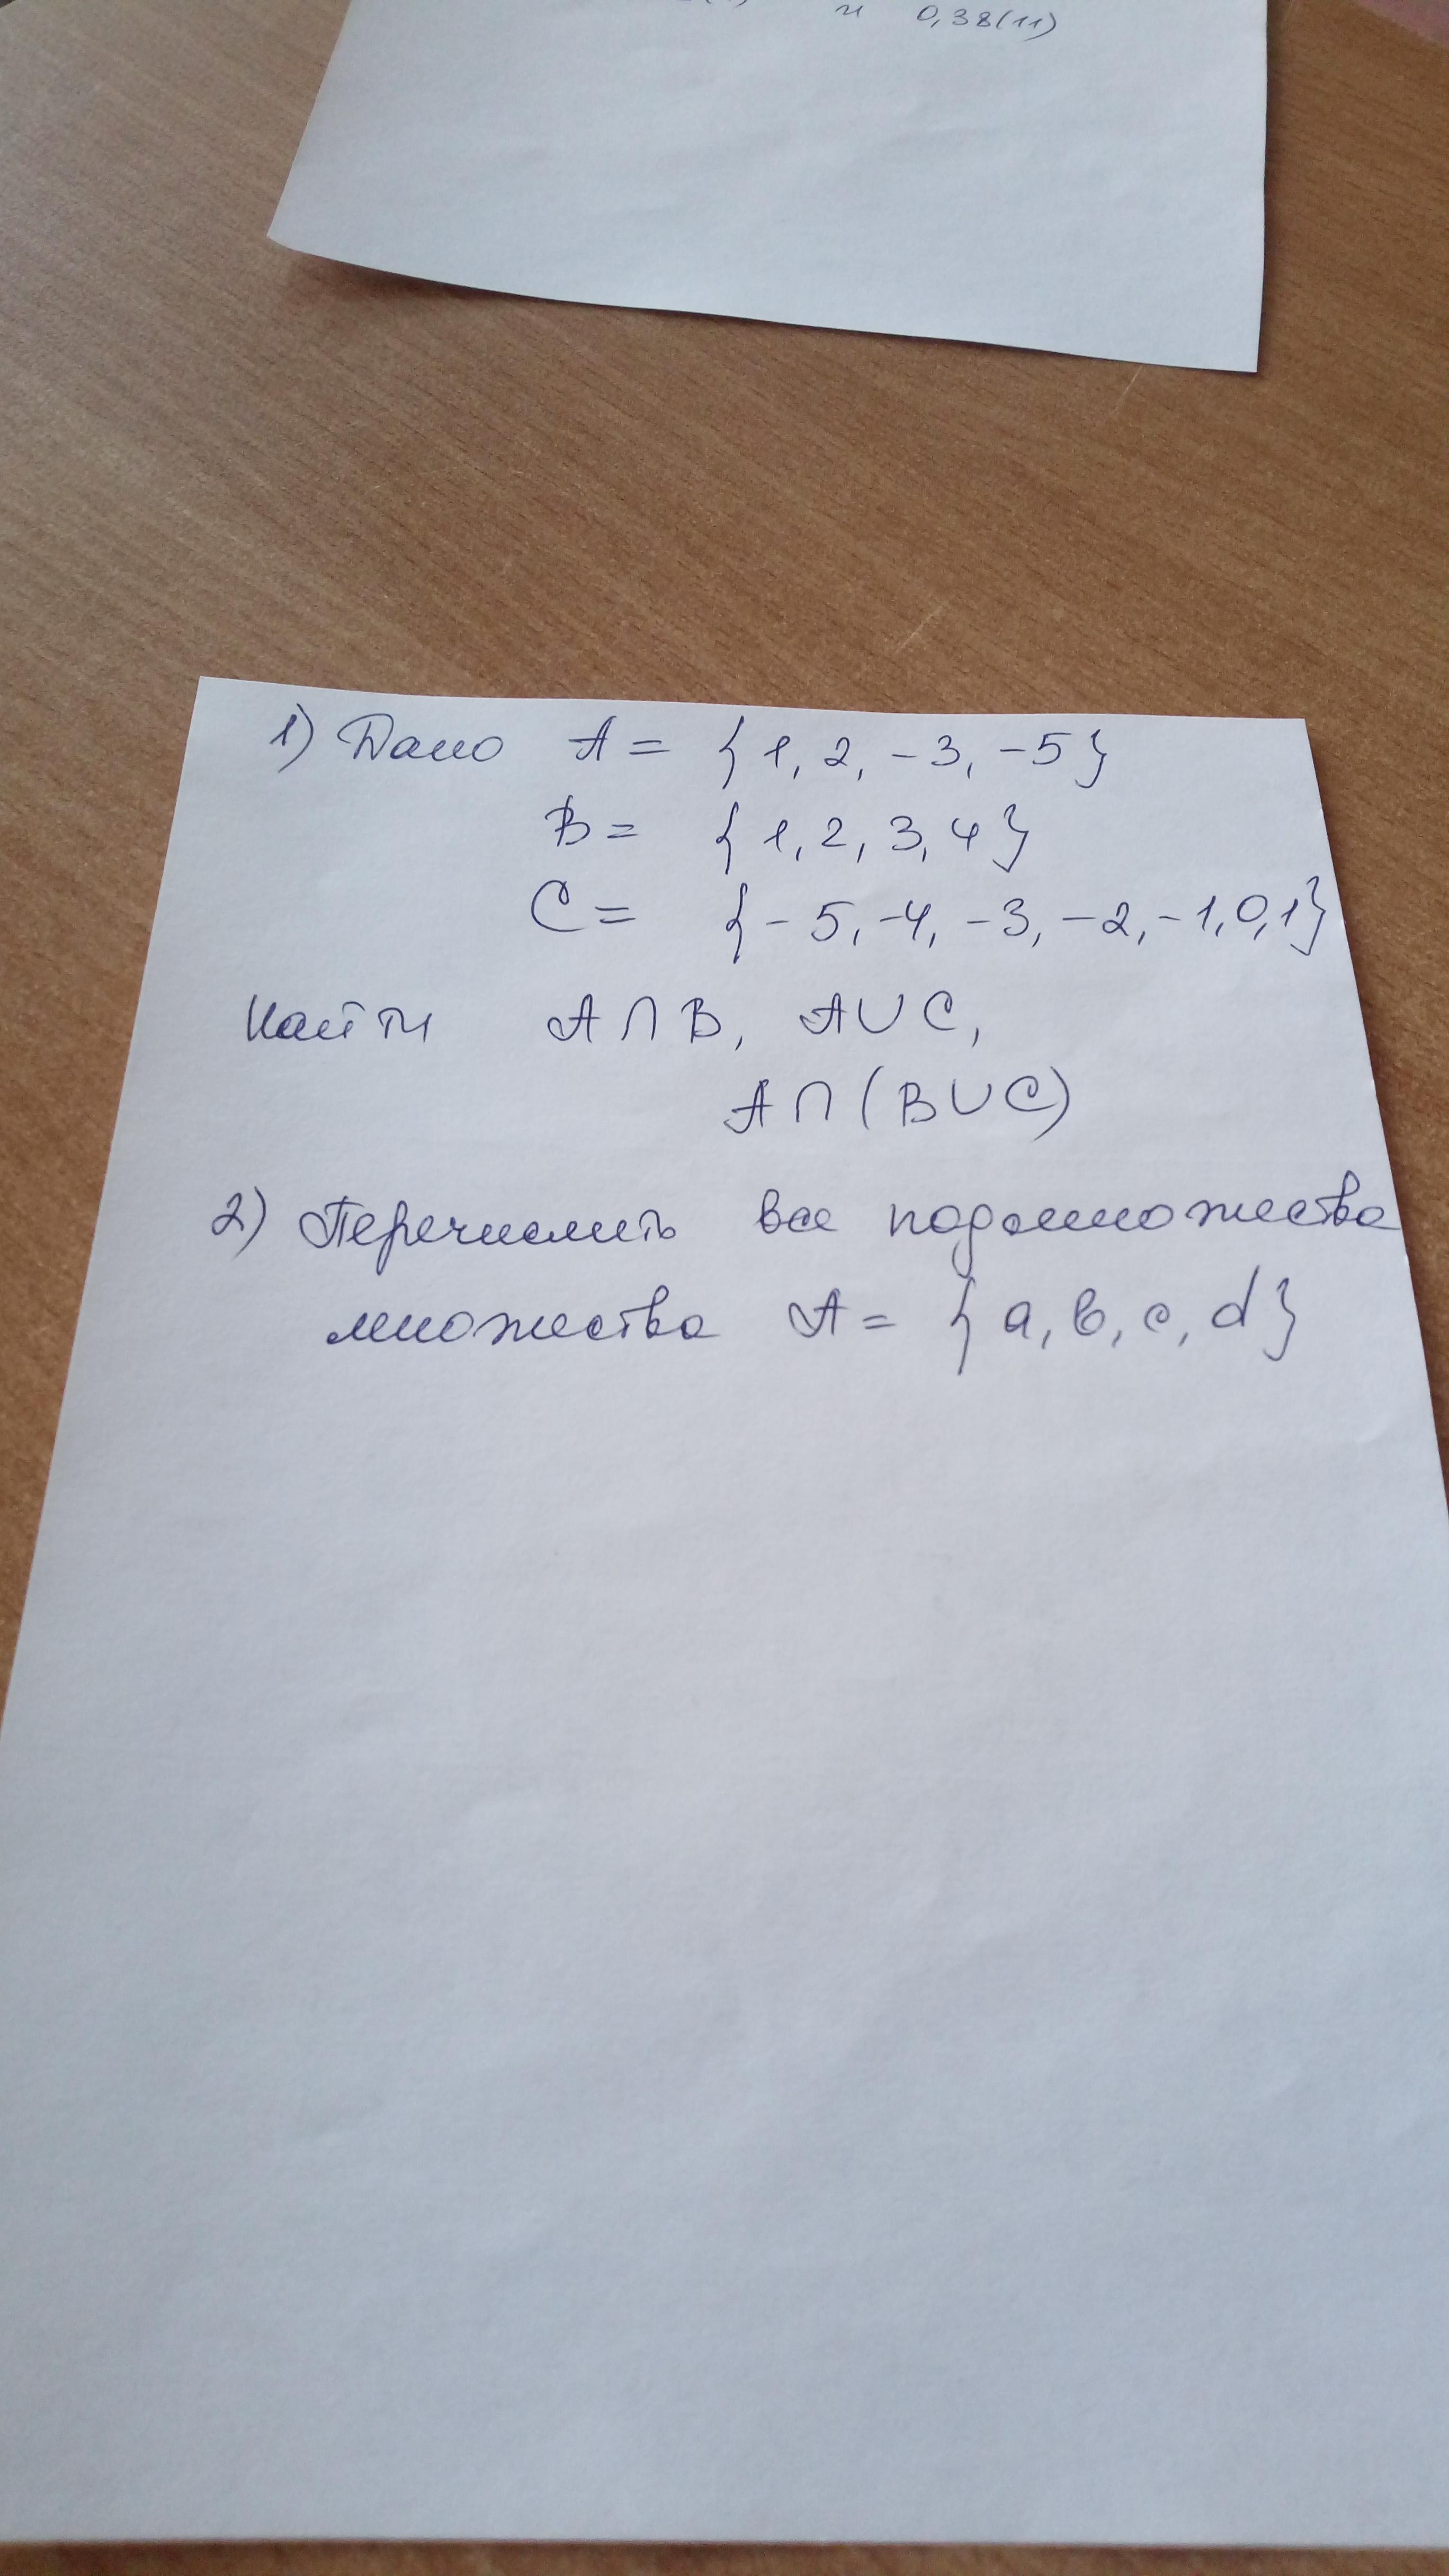 и 0,38(11)
1) Дано A = {1, 2, -3, -5}
B = {1, 2, 3, 4}
C = {-5, -4, -3, -2, -1, 0, 1}
Найти A∩B, A∪C,
A∩(B∪C)
2) Перечислить все подмножества
множества A = {a, b, c, d}